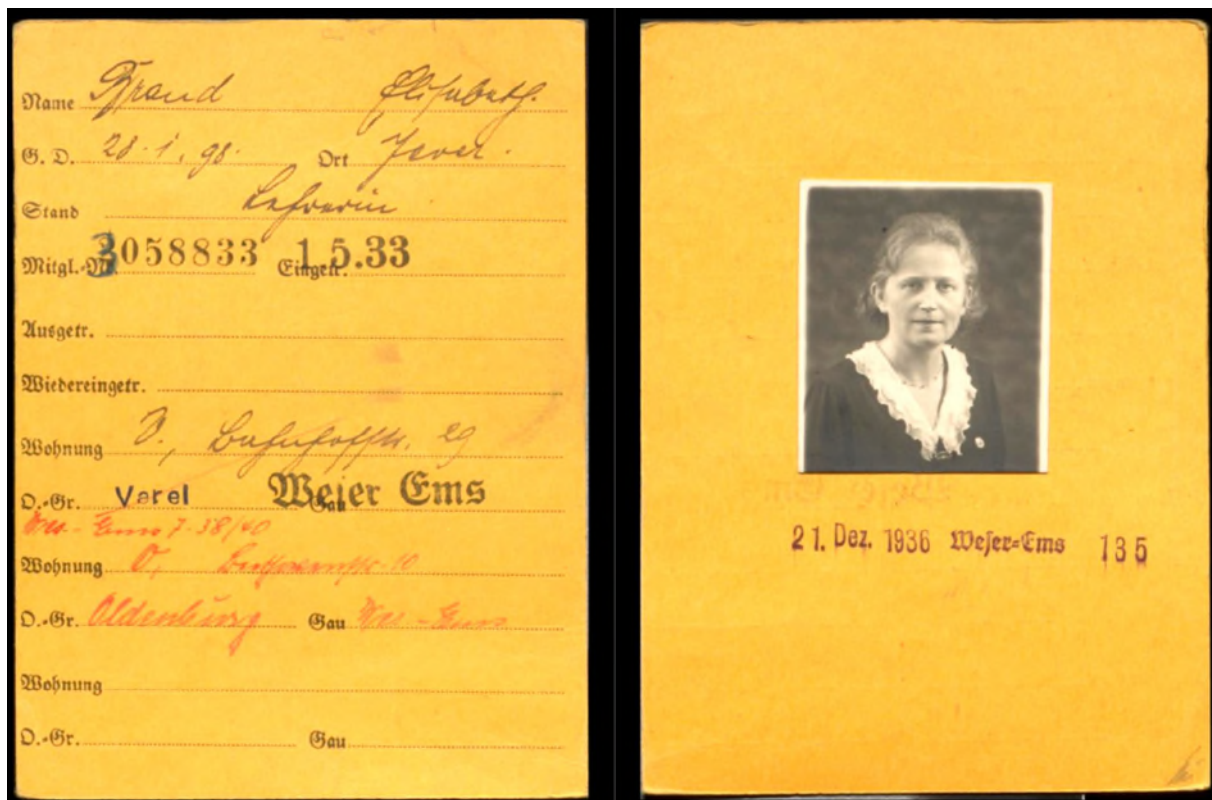 Name Brand Elisabeth.
G. D. 28.1.98. Ort Jever.
Stand Lehrerin
Mitgl.-Nr. 3058833 Eingetr. 1.5.33
Ausgetr.
Wiedereingetr.
Wohnung V., Bahnhofstr. 29
O.-Gr. Varel Gau Weser Ems
Wes-Ems 7.38/40
Wohnung O., 10
O.-Gr. Oldenburg Gau Wes-Ems
Wohnung
O.-Gr. Gau
21. Dez. 1936 Weser-Ems 135